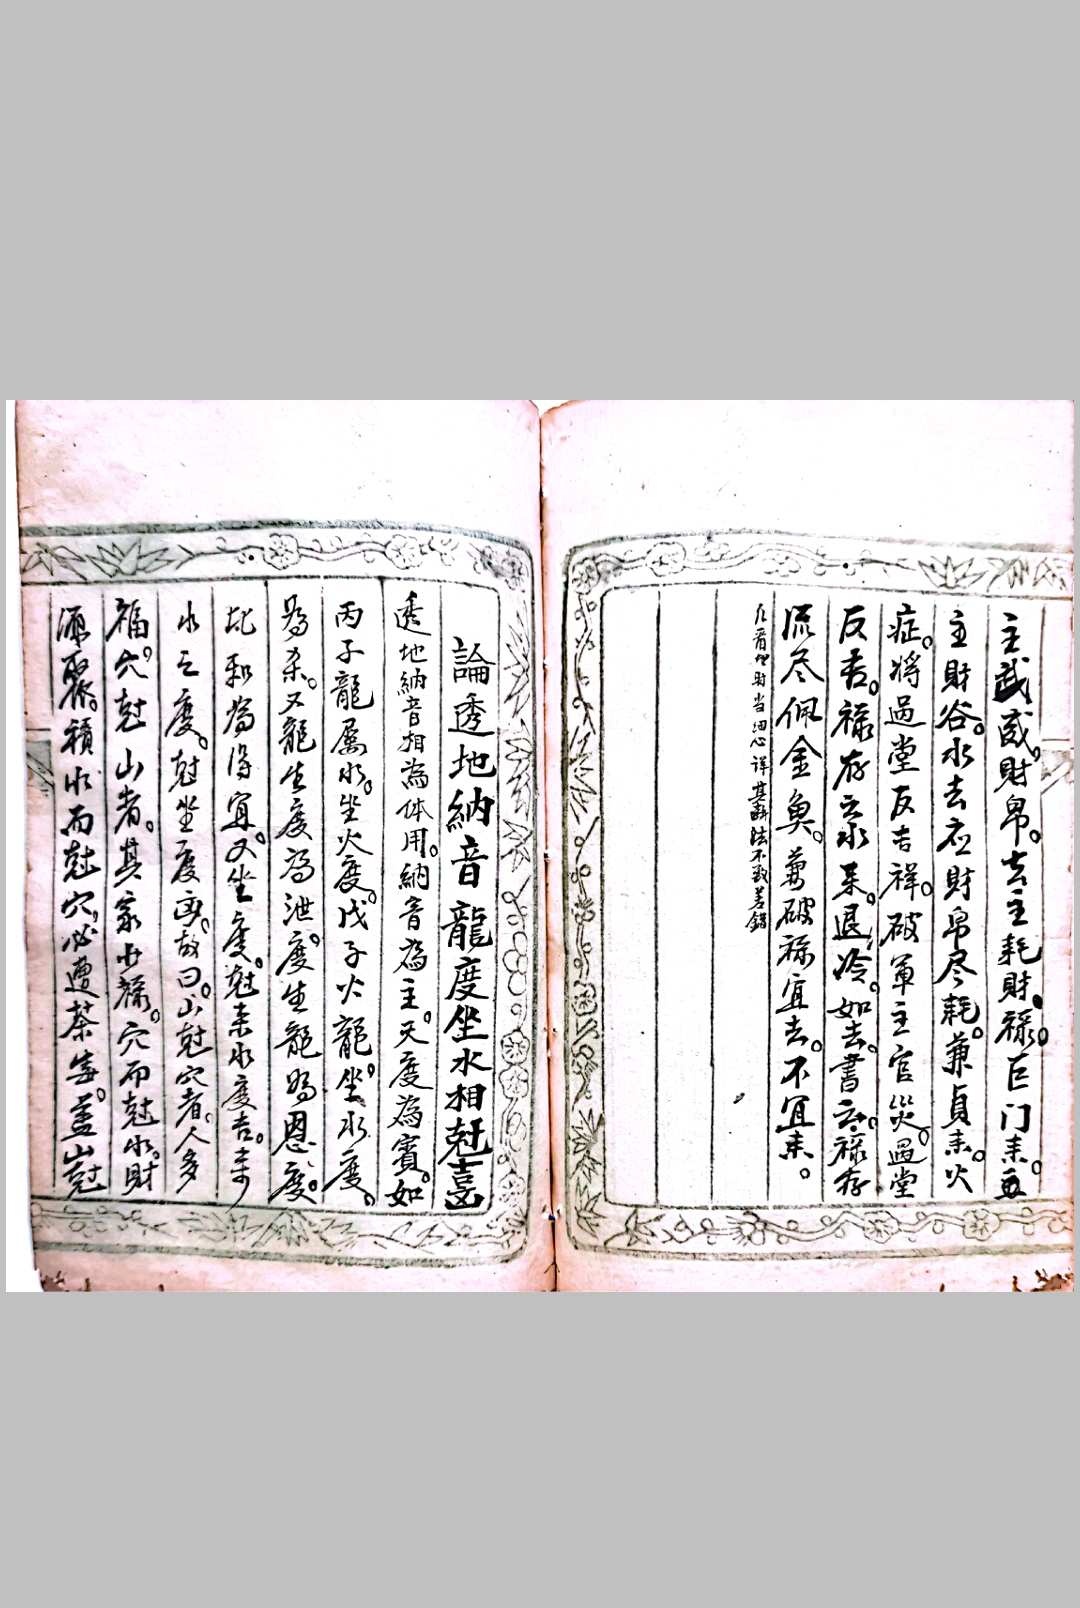 主武威。財帛。去主耗財。禄。巨门来。五
主財谷。水去应財帛尽耗。兼貞来。火
症。将過堂反吉祥。破軍主官災。過堂
反吉。禄存之水来。退冷。如去。書云。禄存
流尽佩金魚。兼破禄宜去。不宜来。
財当细心详其斷法不致差錯
論透地納音龍度坐水相尅意
透地納音相為体用。納音為主。天度為賓。如
丙子龍屬水。坐火度。戊子火龍。坐水度。
為杀。又龍生度為泄。度生龍為恩度。
比和為得宜。又坐度。尅来水度吉。来
水之度。尅坐度凶。故曰。山尅穴者。人多
福。穴尅山者。其家少禄。穴而尅水。財
源聚。積水而尅穴。必遭荼毒。蓋山尅